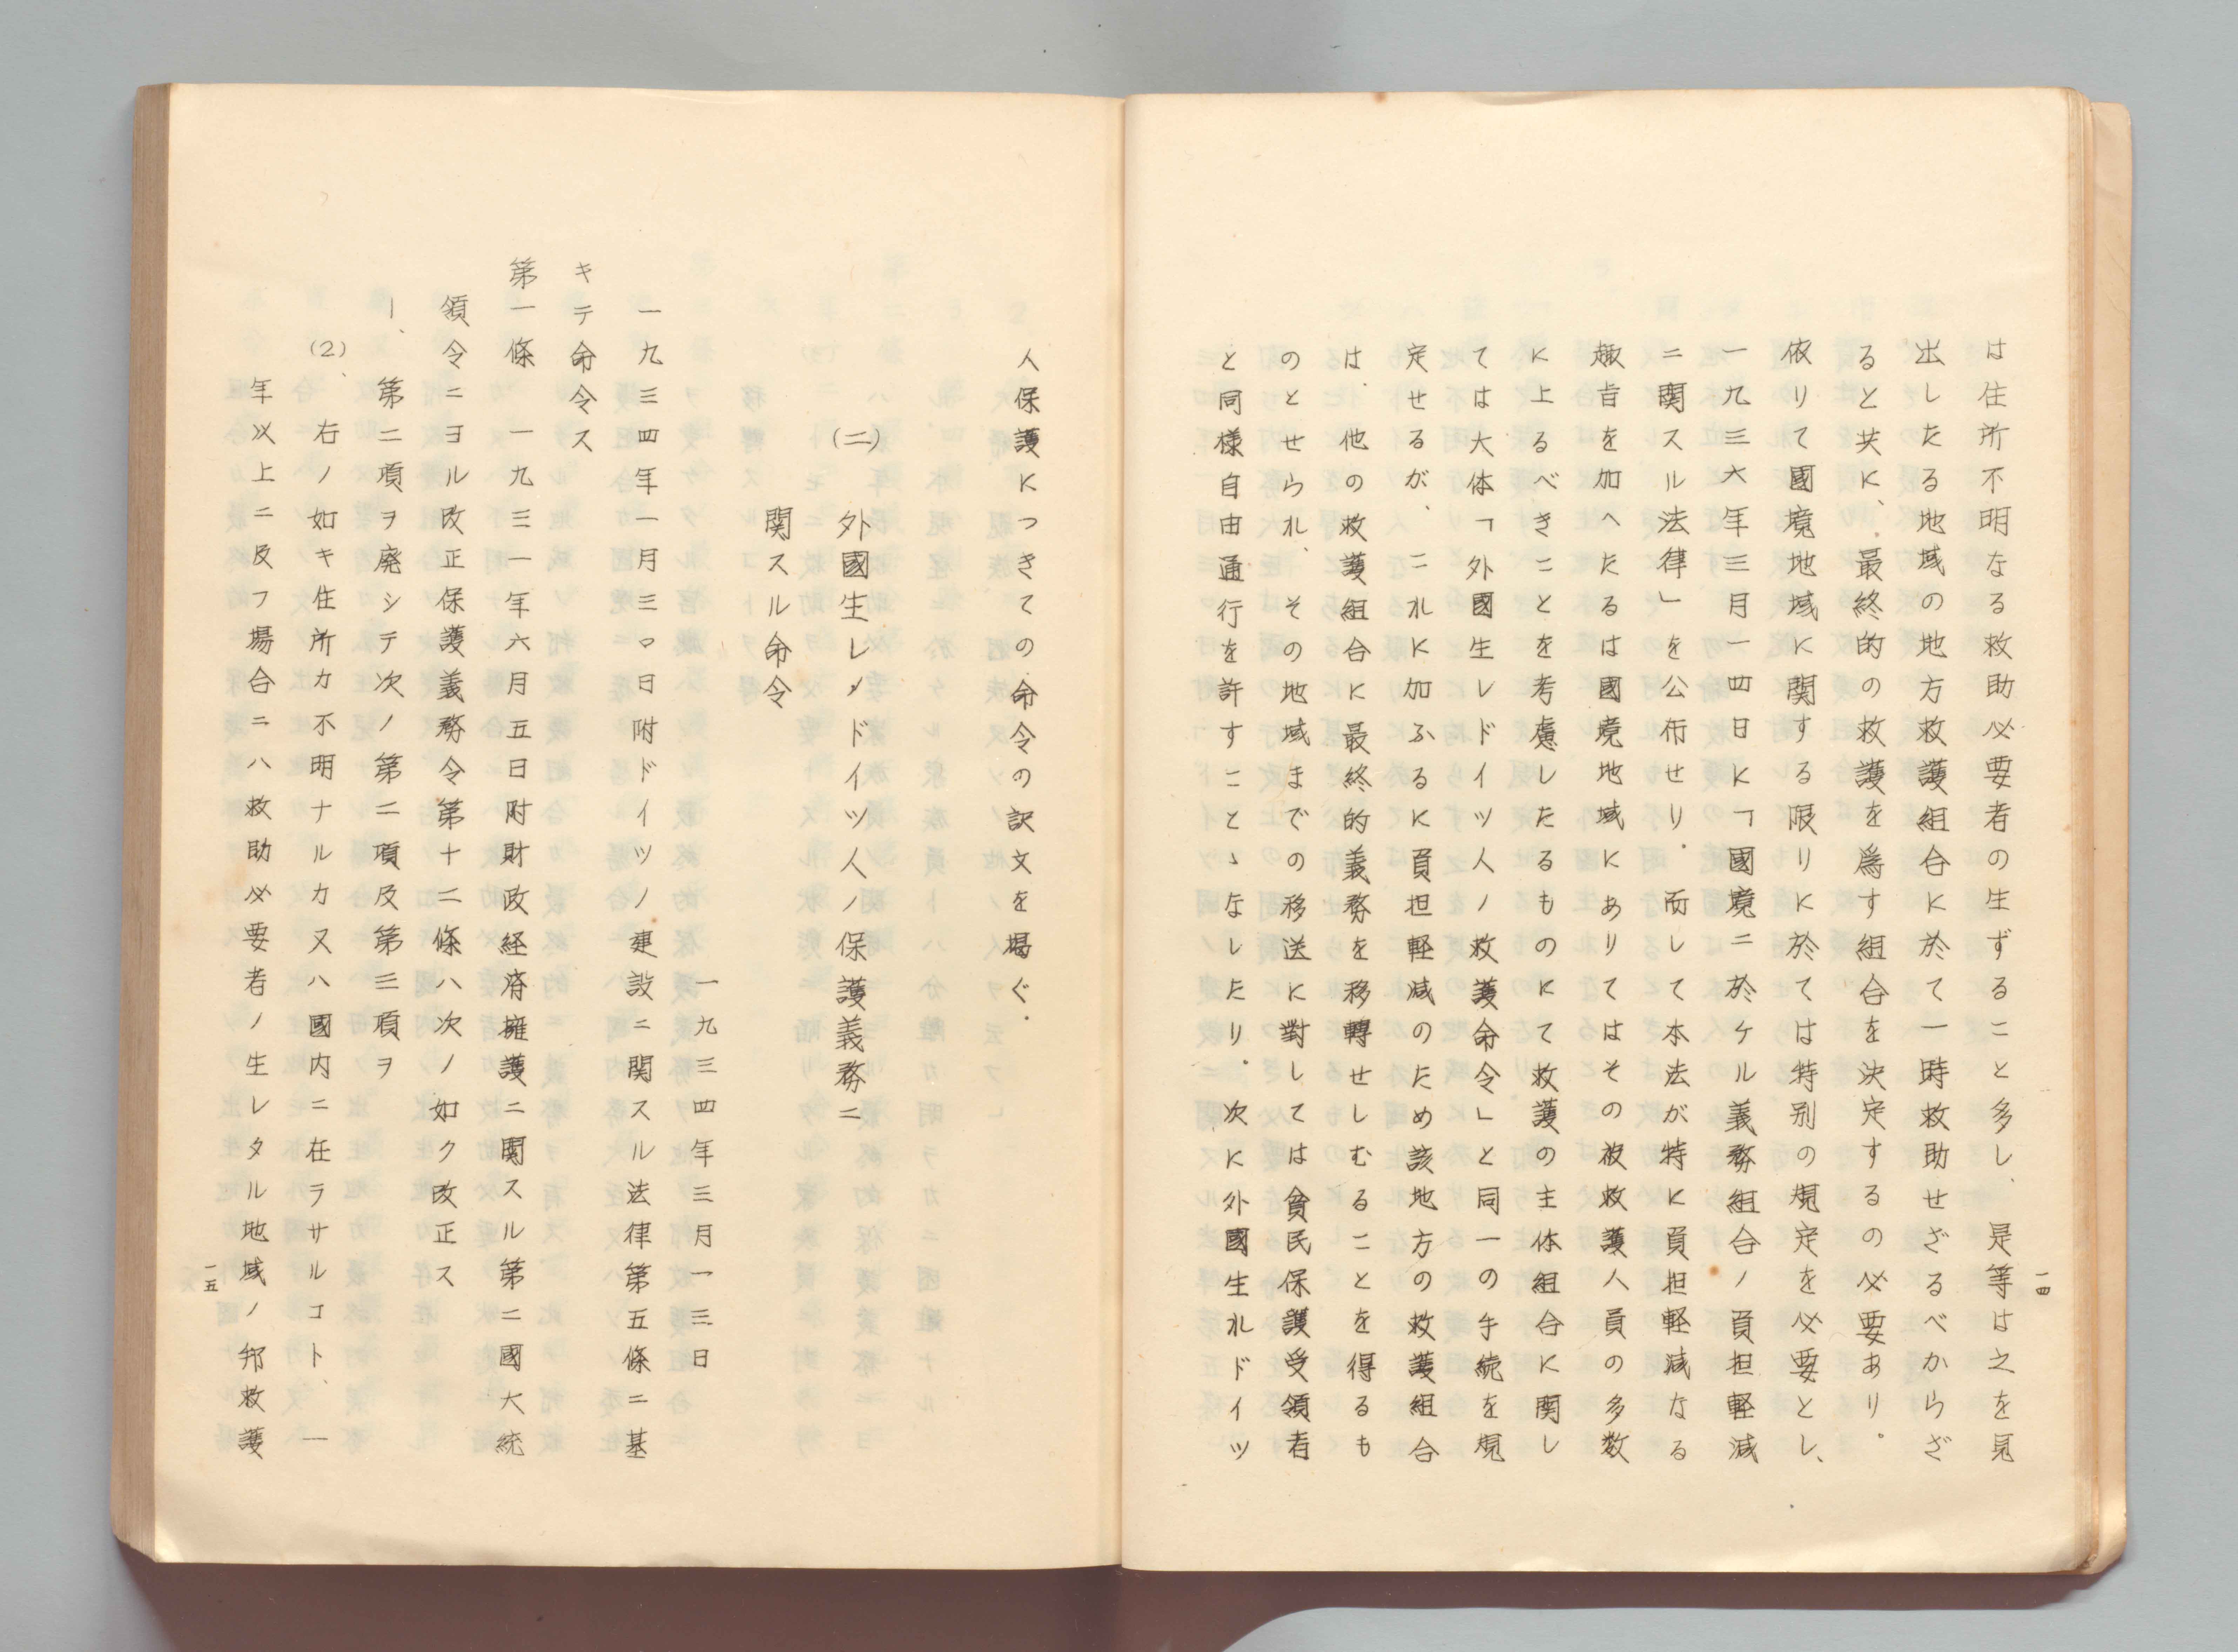 一四
は住所不明なる救助必要者の生ずること多し、是等は之を見
出したる地域の地方救護組合に於て一時救助せざるべからざ
ると共に、最終的の救護を為す組合を決定するの必要あり。
依りて國境地域に関する限りに於ては特別の規定を必要とし、
一九三六年三月一四日に「國境ニ於ケル義務組合ノ負担軽減
ニ関スル法律」を公布せり。而して本法が特に負担軽減なる
趣旨を加へたるは國境地域にありてはその被救護人員の多数
に上るべきことを考慮したるものにて救護の主体組合に関し
ては大体「外國生レドイツ人ノ救護命令」と同一の手続を規
定せるが、これに加ふるに負担軽減のため該地方の救護組合
は、他の救護組合に最終的義務を移轉せしむることを得るも
のとせられ、その地域までの移送に對しては貧民保護受領者
と同様自由通行を許すことゝなしたり。次に外國生れドイツ
人保護につきての命令の訳文を掲ぐ。
(二) 外國生レノドイツ人ノ保護義務ニ
関スル命令
一九三四年三月一三日
一九三四年一月三〇日附ドイツノ建設ニ関スル法律第五條ニ基
キテ命令ス
第一條 一九三一年六月五日附財政経済擁護ニ関スル第二國大統
領令ニヨル改正保護義務令第十二條ハ次ノ如ク改正ス
一、第二項ヲ廃シテ次ノ第二項及第三項ヲ
(2)、右ノ如キ住所カ不明ナルカ又ハ國内ニ在ラサルコト、一
年以上ニ及フ場合ニハ救助必要者ノ生レタル地域ノ邦救護
一五